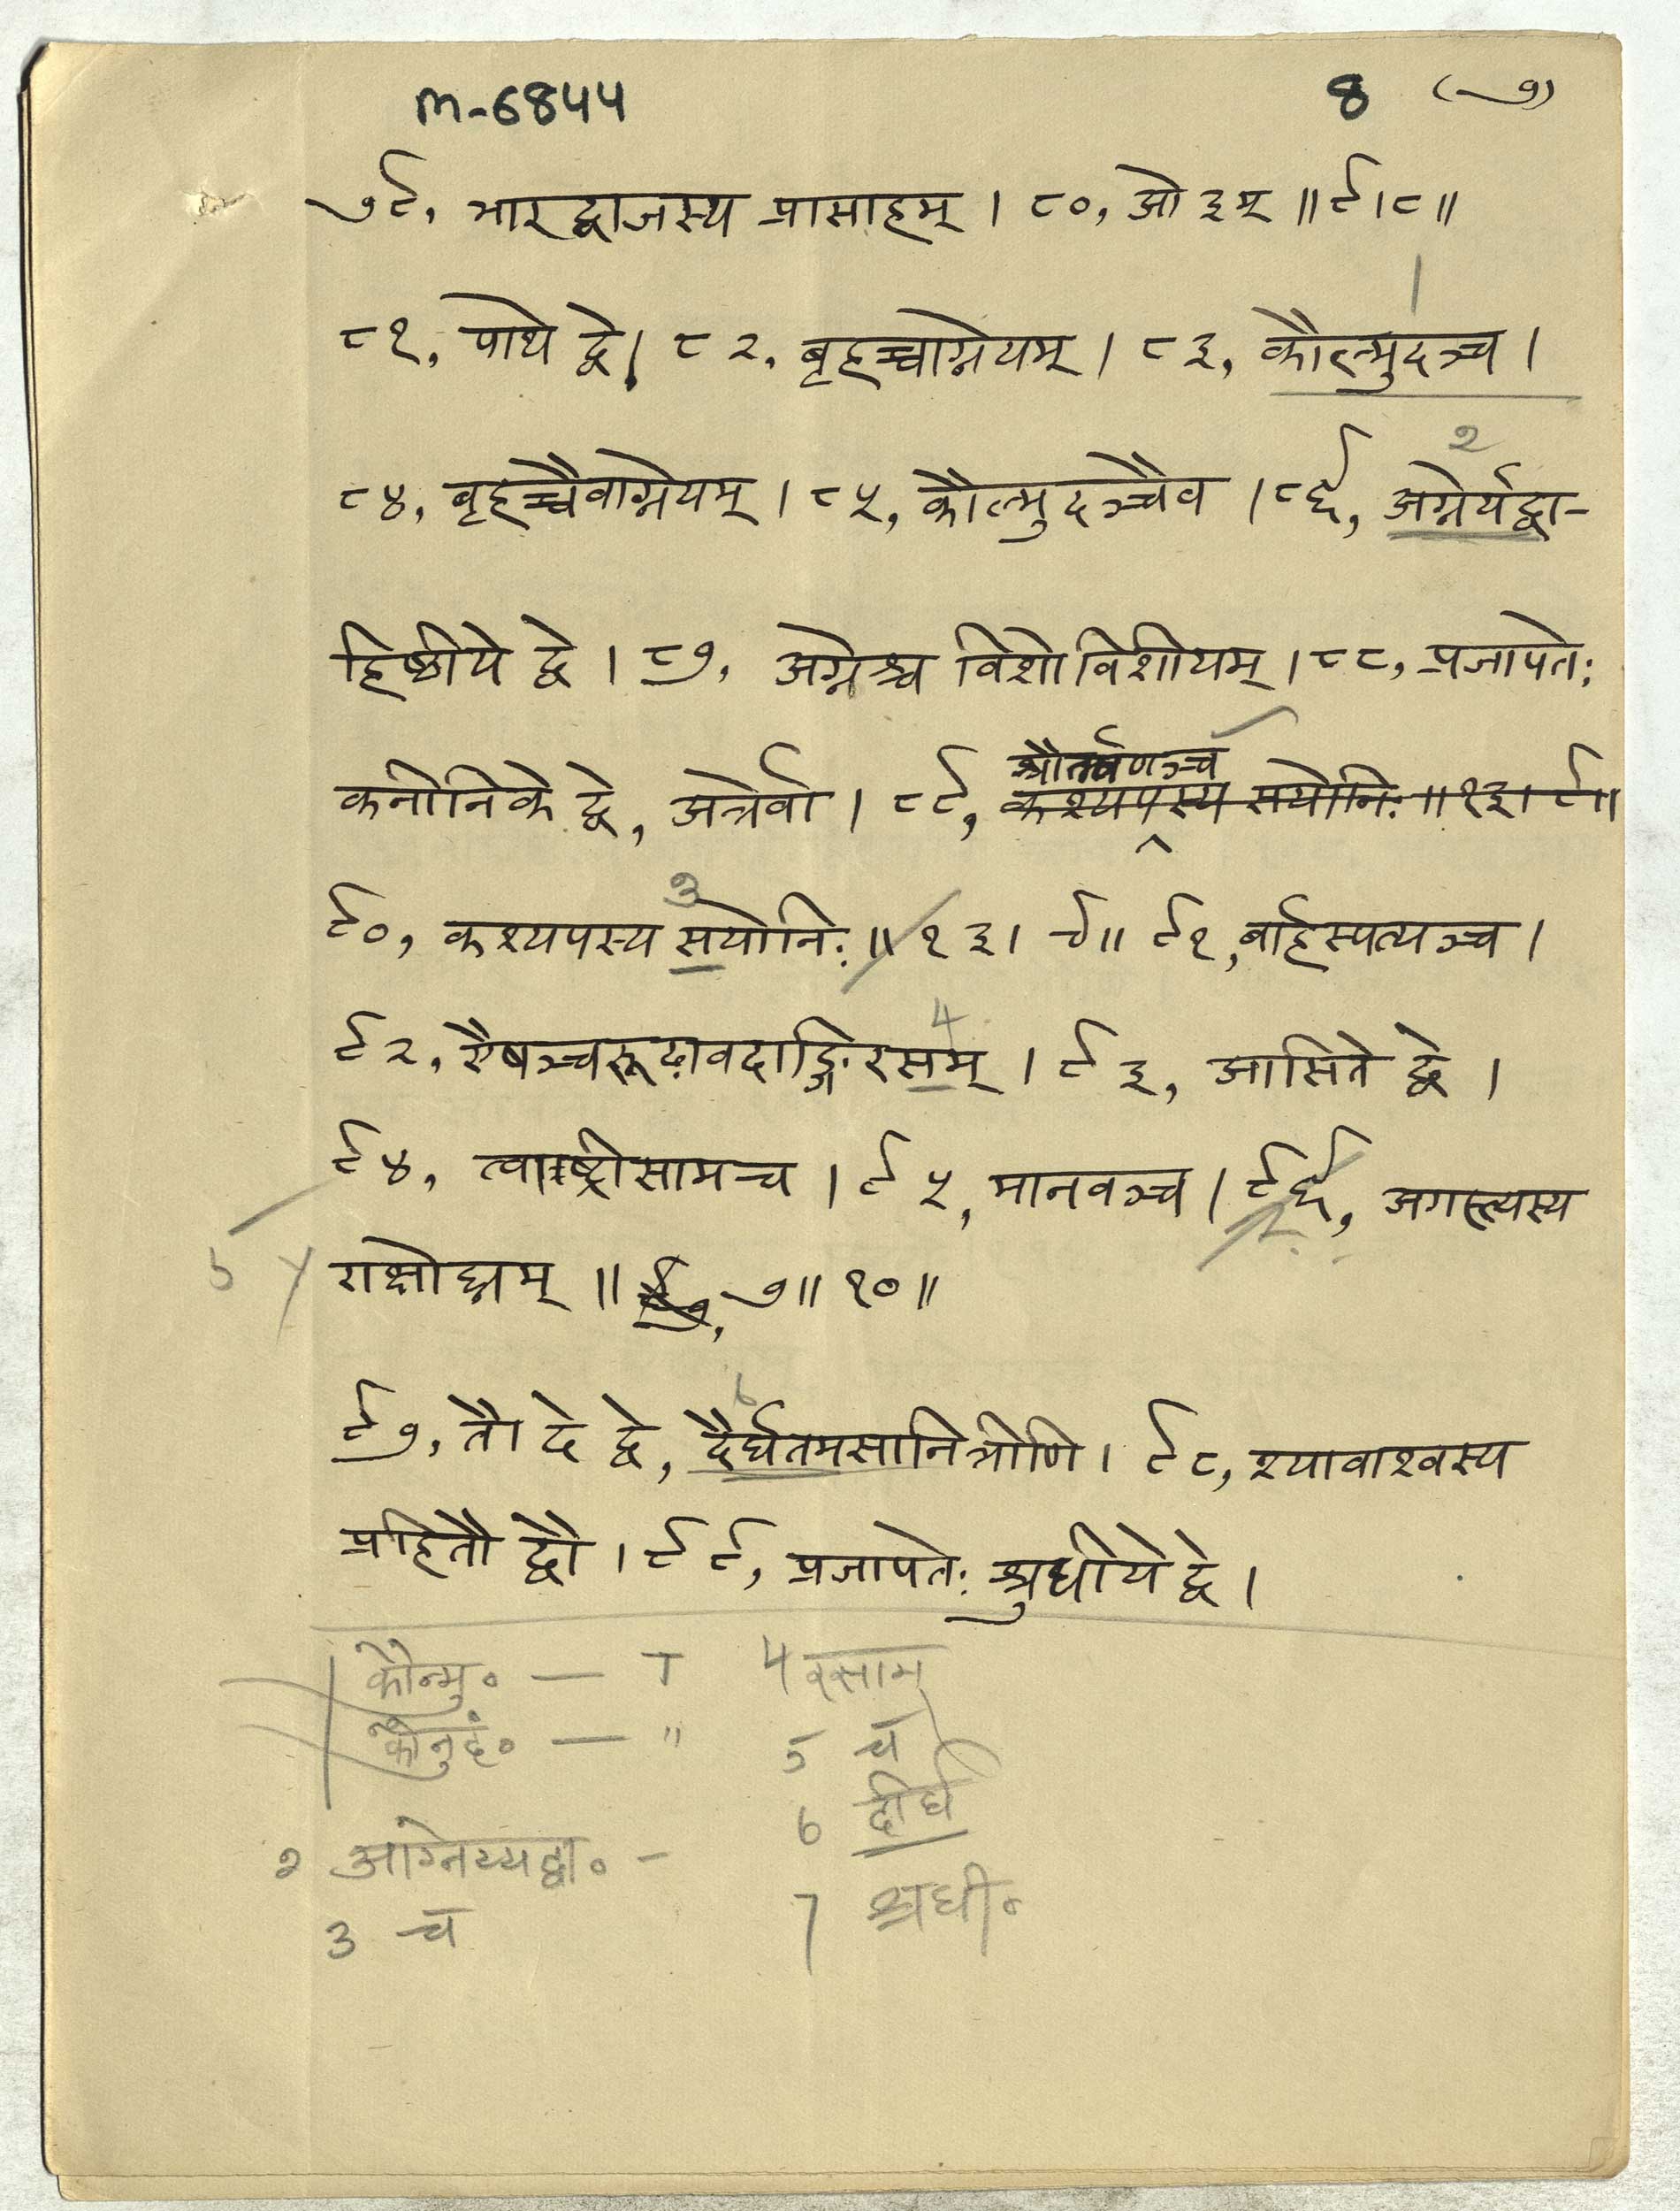 m-6844 8 (७)
७९, भारद्वाजस्य प्रासाहम् । ८०, ओ३म् ॥९।८॥
1
८१, पाथे द्वे। ८२, बृहच्चाग्नेयम् । ८३, कौल्मुदञ्च ।
2
८४, बृहच्चैवाग्नेयम् । ८५, कौल्मुदञ्चैव । ८६, अग्नेर्यद्वा-
हिष्ठीये द्वे । ८७, अग्नेश्च विशोविशीयम् । ८८, प्रजापतेः
श्रौतर्वणञ्च
कनीनिके द्वे, अत्रेर्वा । ८९, कश्यपस्य सयोनिः ॥१३।९॥
3
९०, कश्यपस्य सयोनिः ॥ १३। ९॥ ९१, बार्हस्पत्यञ्च ।
4
९२, ऐषञ्चरूढावदाङ्गिरसम् । ९३, आसिते द्वे ।
९४, त्वाष्ट्रीसामच । ९५, मानवञ्च । ९६, अगस्त्यस्य
5 राक्षोघ्नम् ॥ ७॥ १०॥
6
९७, तौ दे द्वे, दैर्घतमसानित्रीणि । ९८, श्यावाश्वस्य
प्रहितौ द्वौ । ९९, प्रजापतेः श्रुधीये द्वे ।
कौन्मु० — T 4 रसाम्
कौनुदं० — " 5 च
6 दीर्घ
2 आग्नेय्यद्वा० -
3 च 7 श्रधी०